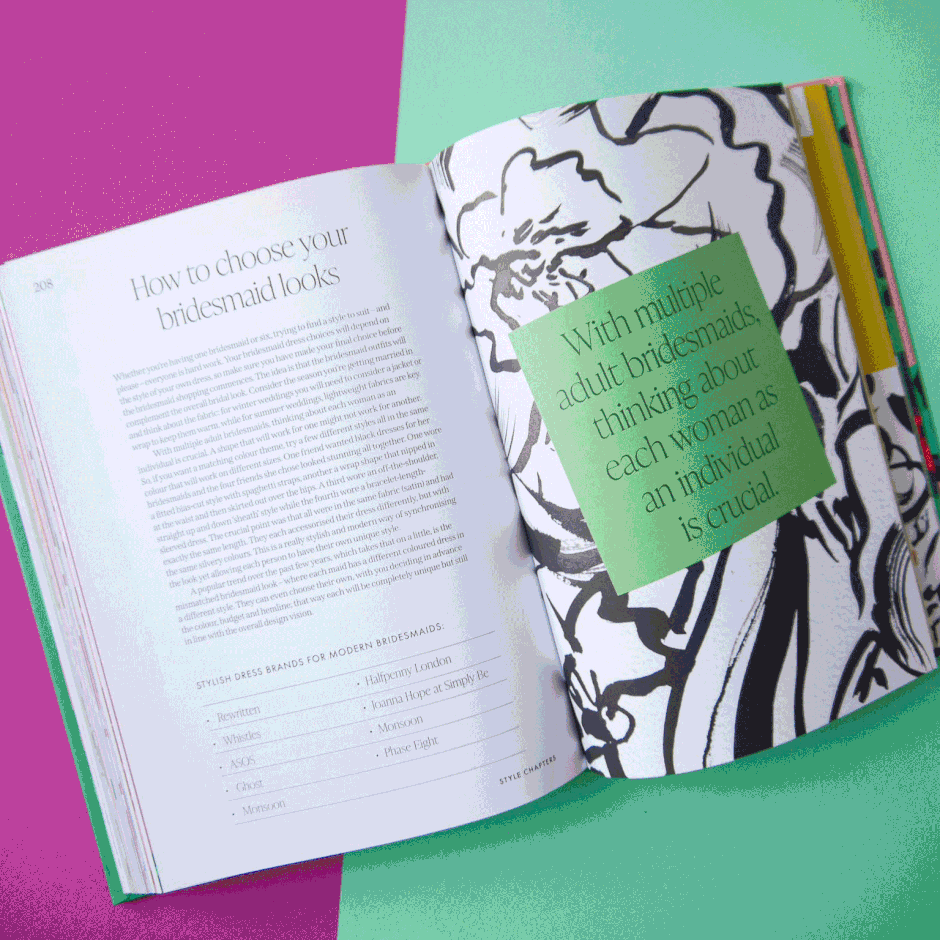 208
How to choose your
bridesmaid looks
Whether you're having one bridesmaid or six, trying to find a style to suit – and
please – everyone is hard work. Your bridesmaid dress choices will depend on
the style of your own dress, so make sure you have made your final choice before
the bridesmaid shopping commences. The idea is that the bridesmaid outfits will
compliment the overall bridal look. Consider the season you're getting married in
and think about the fabric: for winter weddings you will need to consider a jacket or
wrap to keep them warm, while for summer weddings, lightweight fabrics are key.
With multiple adult bridesmaids, thinking about each woman as an
individual is crucial. A shape that will work for one might not work for another.
So, if you want a matching colour theme, try a few different styles all in the same
colour that will work on different sizes. One friend wanted black dresses for her
bridesmaids and the four friends she chose looked stunning all together. One wore
a fitted bias-cut style with spaghetti straps, another a wrap shape that nipped in
at the waist and then skirted out over the hips. A third wore an off-the-shoulder,
straight up and down 'sheath' style while the fourth wore a bracelet-length-
sleeved dress. The crucial point was that all were in the same fabric (satin) and had
exactly the same length. They each accessorised their dress differently, but with
the same silvery colours. This is a really stylish and modern way of synchronising
the look yet allowing each person to have their own unique style.
A popular trend over the past few years, which takes that on a little, is the
mismatched bridesmaid look – where each maid has a different coloured dress in
a different style. They can even choose their own, with you deciding in advance
the colour, budget and hemline, that way each will be completely unique but still
in line with the overall design vision.
STYLISH DRESS BRANDS FOR MODERN BRIDESMAIDS:
• Rewritten
• Whistles
• ASOS
• Ghost
• Monsoon
• Halfpenny London
• Joanna Hope at Simply Be
• Monsoon
• Phase Eight
STYLE CHAPTERS
With multiple
adult bridesmaids,
thinking about
each woman as
an individual
is crucial.